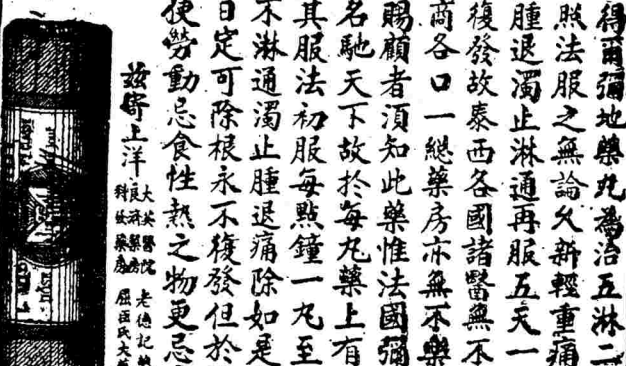 得爾彌地藥丸為治五淋二
照法服之無論久新輕重痛
腫退濁止淋通再服五天一
復發故泰西各國諸醫無不
商各口一總藥房亦無不樂
賜顧者須知此藥惟法國彌
名馳天下故於每丸藥上有
其服法初服每點鐘一丸至
不淋通濁止腫退痛除如是
日定可除根永不復發但於
便勞動忌食性熱之物更忌
茲寄上洋
大英醫院 老德記藥
良濟藥房
科發藥房 屈臣氏大藥